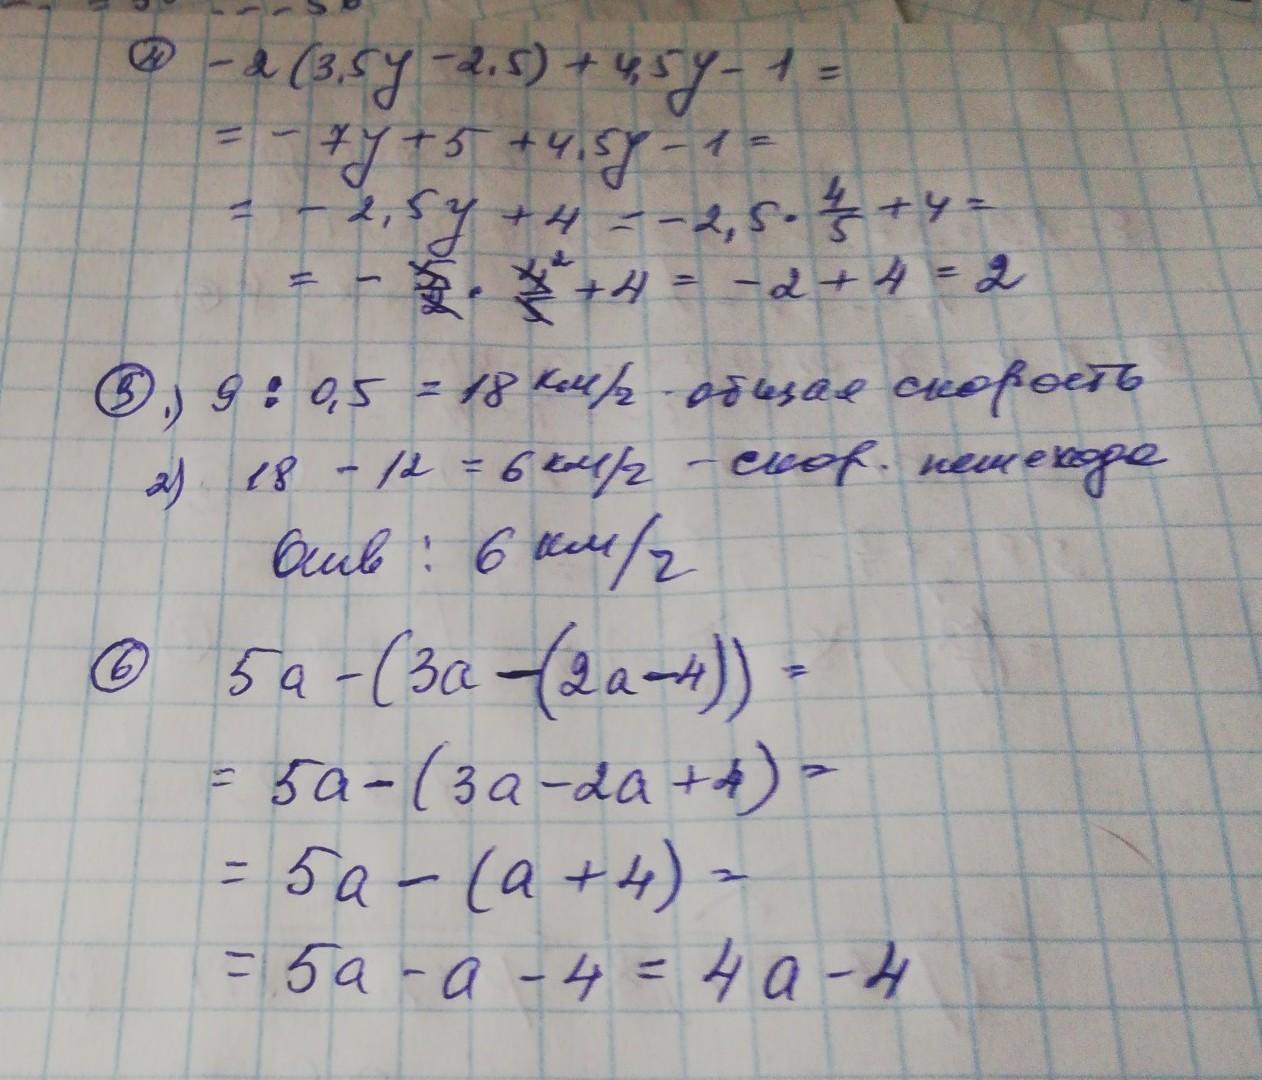 ④ -2(3,5y-2.5)+4,5y-1=
=-7y+5+4.5y-1=
=-2,5y+4=-2,5·4/5+4=
=-5/2·4²/5+4=-2+4=2
⑤ 1) 9:0,5=18 км/ч - общая скорость
2) 18-12=6 км/ч - скор. пешехода
Отв: 6 км/ч
⑥ 5a-(3a-(2a-4))=
=5a-(3a-2a+4)=
=5a-(a+4)=
=5a-a-4=4a-4